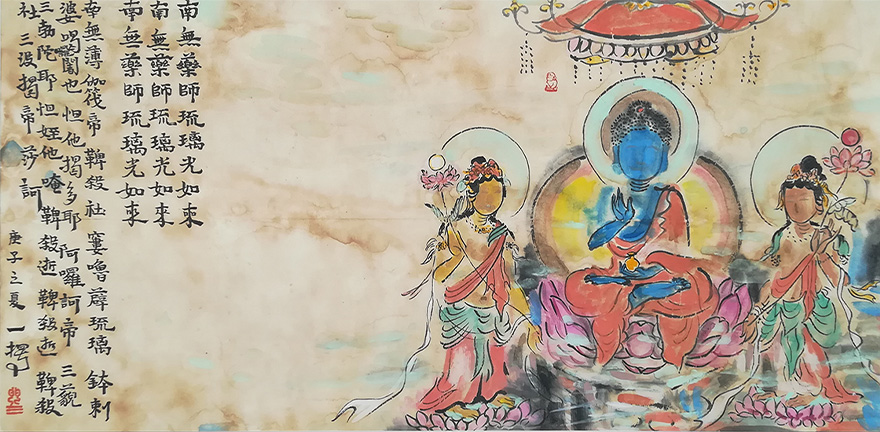 南無藥師琉璃光如來
南無藥師琉璃光如來
南無藥師琉璃光如來
南無薄伽筏帝 鞞殺社 窶嚕薜琉璃 鉢剌
婆 喝闍也 怛他揭多耶 阿囉訶帝 三藐
三勃陀耶 怛姪他 唵 鞞殺逝 鞞殺逝 鞞殺
社 三沒揭帝 莎訶 庚子之夏 一